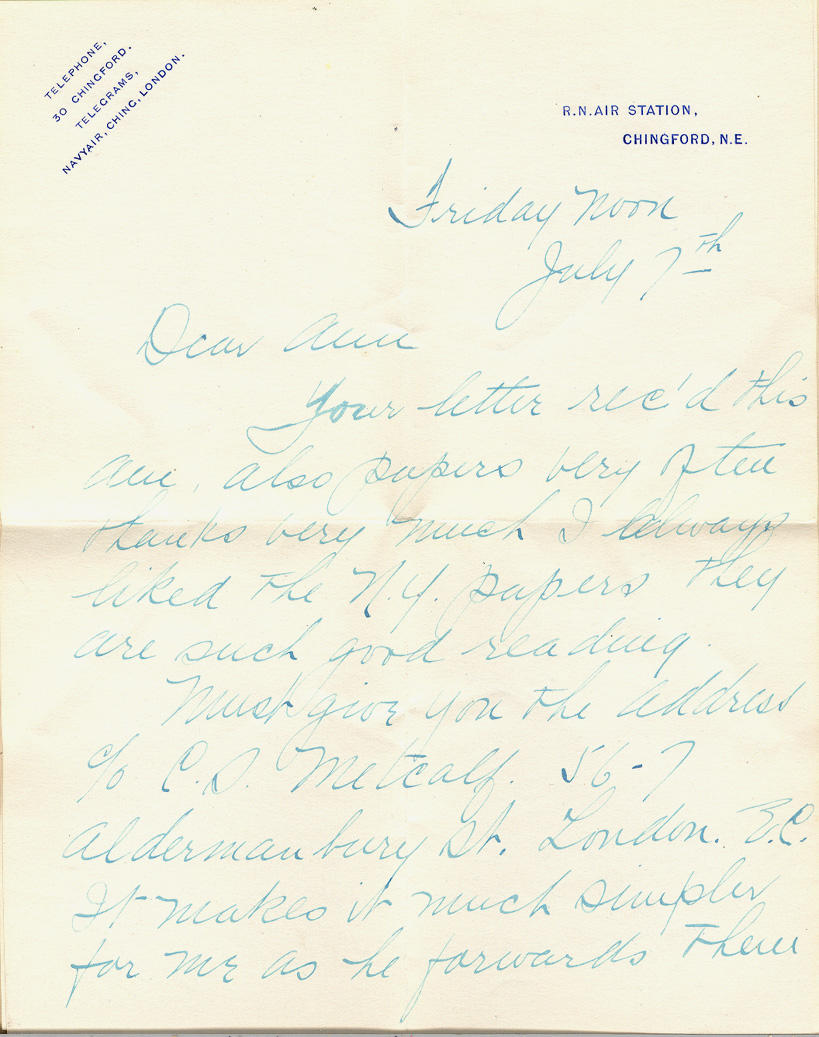 TELEPHONE,
30 CHINGFORD.
TELEGRAMS,
NAVYAIR, CHING, LONDON.
R.N. AIR STATION,
CHINGFORD, N.E.
Friday Noon
July 7th
Dear Ann
Your letter rec'd this
am, also papers very often
thanks very much I always
liked the N.Y. papers they
are such good reading.
Must give you the address
c/o C.S. Metcalf. 56-7
Aldermanbury St. London. E.C.
It makes it much simpler
for me as he forwards them